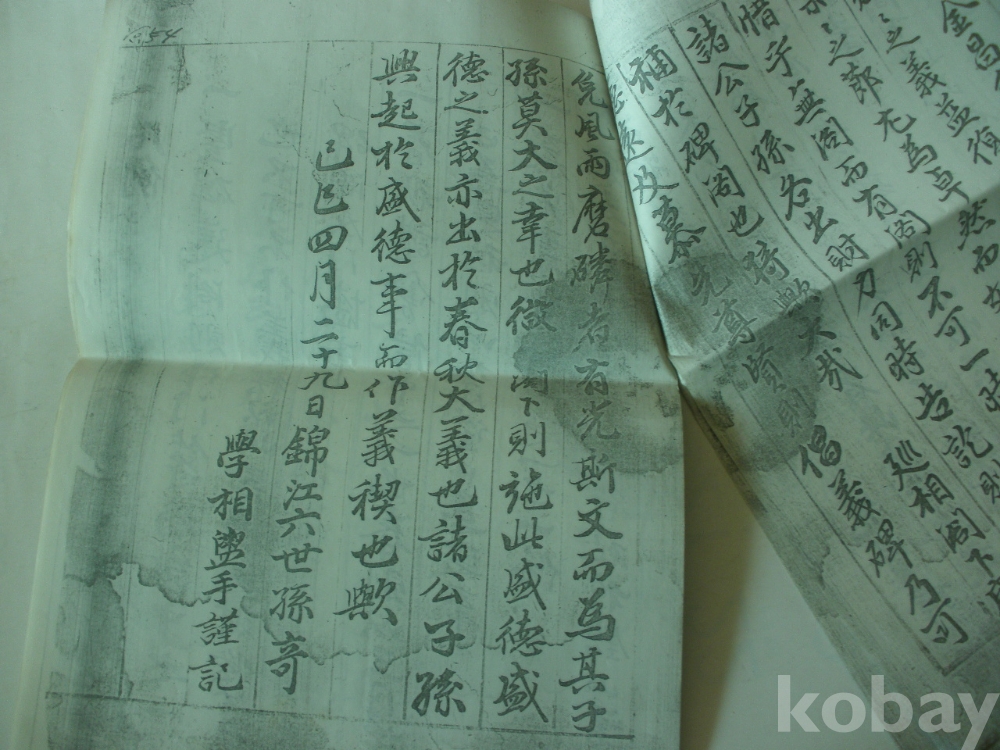 金昌
之義並復
之郎尤為卓然而
惜乎無閣而有閣則不可一時
諸公子孫各出財力同時告訖則
補於碑閣也猗歟大哉 巡相閣下
遠及慕先尊賢則 倡義碑乃可
免風雨磨磷者有光斯文而為其子
孫莫大之幸也微閣下則施此盛德盛
德之義亦出於春秋大義也諸公子孫
興起於盛德事而作義禊也歟
己巳四月二十九日錦江六世孫奇
學相盥手謹記
54
kobay